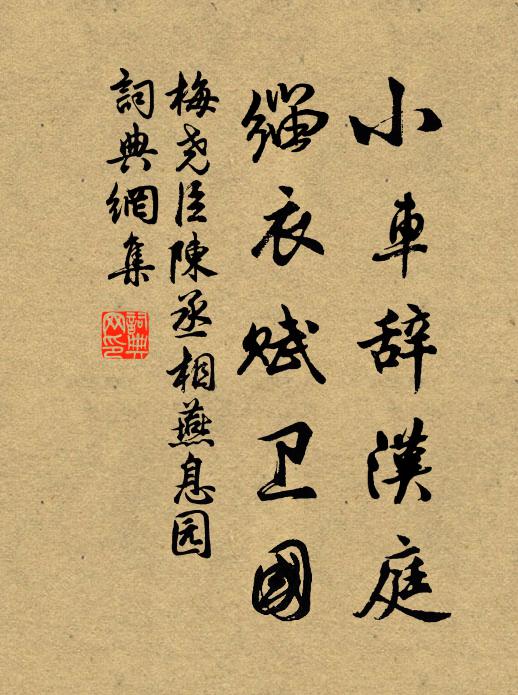 小車辞漢庭
緇衣赋卫國
梅尧臣陳丞相燕息园
詞典網集
詞典网印